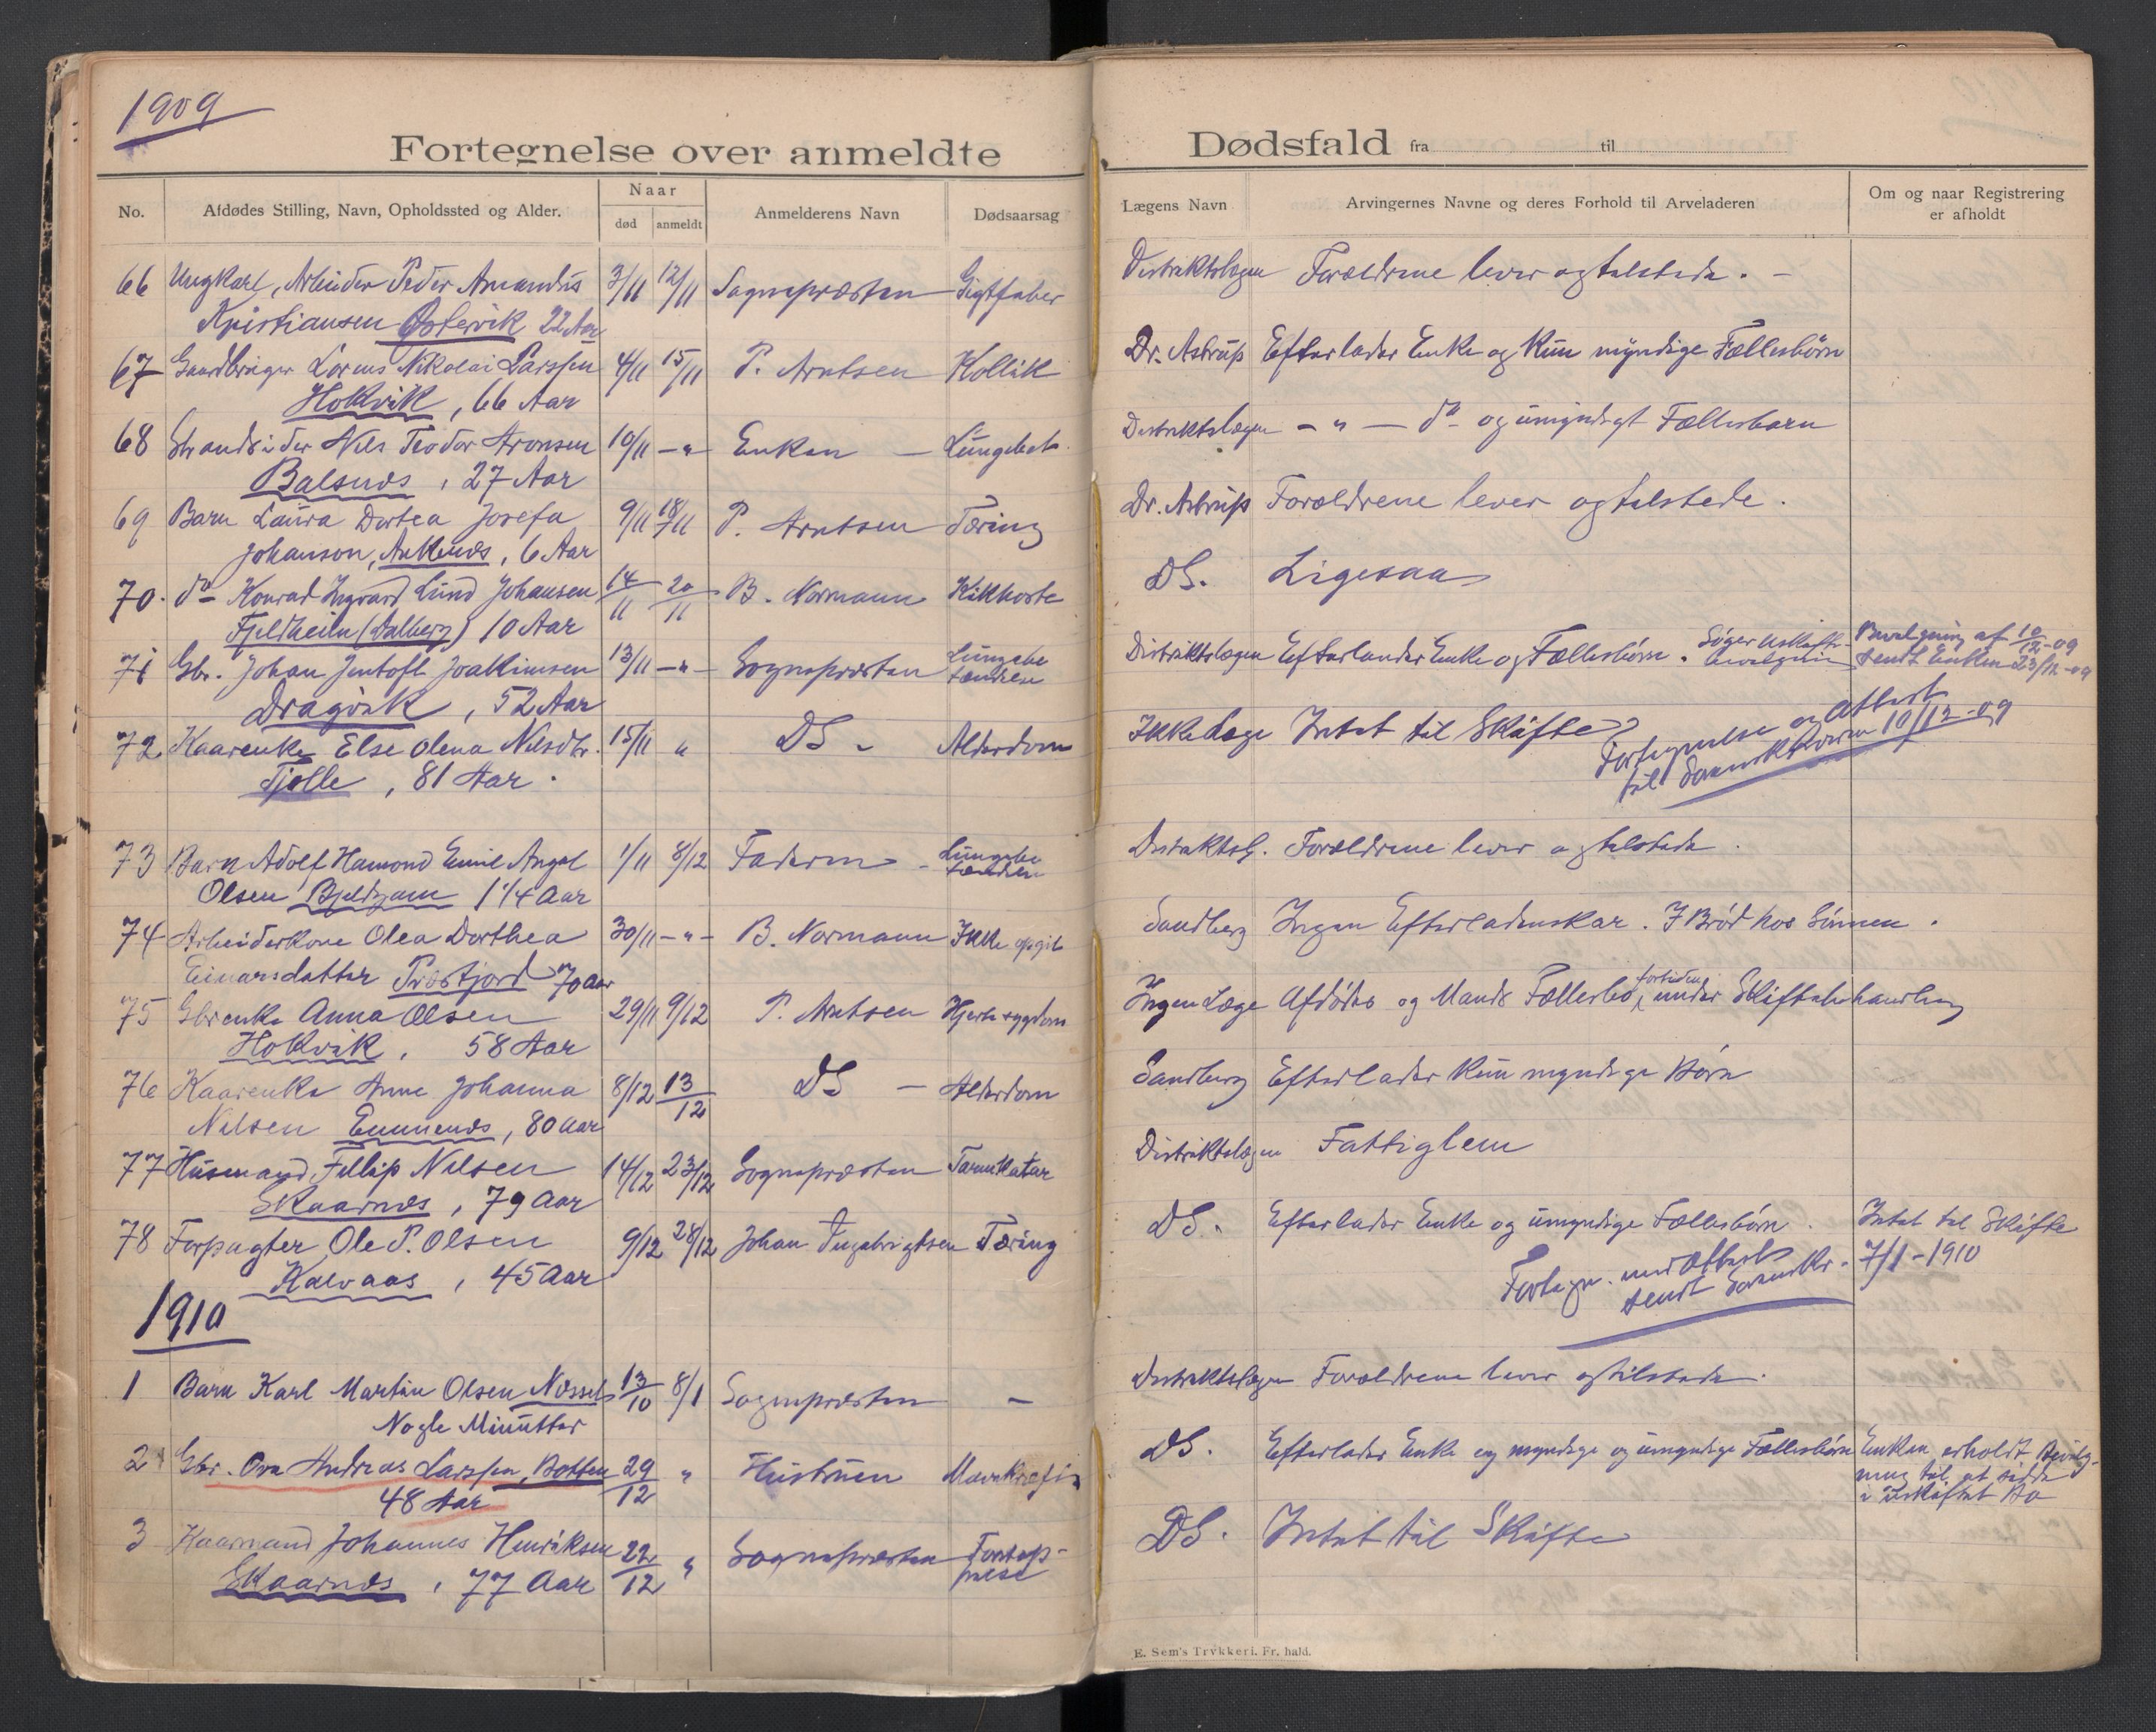 1909
Fortegnelse over anmeldte
Dødsfald fra til
No.
Afdødes Stilling, Navn, Opholdssted og Alder.
Naar
død anmeldt
Anmelderens Navn
Dødsaarsag
Lægens Navn
Arvingernes Navne og deres Forhold til Arveladeren
Om og naar Registrering
er afholdt
66 Ungkarl, Arbeider Peder Amandus 3/11 12/11 Sognepræsten Gigtfeber Distriktslægen Forældrene lever og tilstede. -
Kristiansen Østervik 22 Aar
67 Gaardbruger Lorens Nikolai Larssen 4/11 15/11 P. Arntsen Kollik Dr. Astrup Efterlader Enke og kun myndige Fællesbørn
Hokvik, 66 Aar
68 Strandsider Nils Teodor Aronsen 10/11 - " - Enken - Lungebet. Distriktslægen - " - do og umyndigt Fællesbarn
Balsnes, 27 Aar
69 Barn Laura Dortea Josefa 9/11 18/11 P. Arntsen Tæring Dr. Astrup Forældrene lever og tilstede.
Johanson, Ankenes, 6 Aar
70. do Konrad Ingvard Lund Johansen 14/11 20/11 B. Normann Kikhoste DS. Ligesaa
Fjeldheim (Dalberg) 10 Aar
71 Gbr. Johan Jentoft Joakimsen 13/11 - " - Sognepræsten Lungebe Distriktslægen Efterlader Enke og Fællesbørn. Søger Uskifte- Bevilgning af 10/12-09
tændelse bevilgning sendt Enken 23/12-09
Dragvik, 52 Aar
72 Kaarenke Else Olena Nilsdtr. 15/11 " DS - Alderdom Ikke Læge Intet til Skifte
Tjelle, 81 Aar.
Fortegnelse og Attest
til Sorenskriveren 10/12-09
73 Barn Adolf Hamond Emil Angel 1/11 8/12 Faderen - Lungebe Distriktsl. Forældrene lever og tilstede.
tændelse
Olsen Bjeldgam 1 1/4 Aar
74 Arbeiderkone Olea Dorthea 30/11 - " - B. Normann Ikke opgit Sandberg Ingen Efterladenskar. I Brød hos Sønnen.
Einarsdatter Præstjord 70 Aar
75 Gbrenke Anna Olsen 29/11 9/12 P. Arntsen Hjertesygdom Ingen Læge Afdødes og Mands Fællesbo fortiden under Skiftebehandling
Hokvik, 58 Aar
76 Kaarenke Anne Johanna 8/12 13/12 DS - Alderdom Sandberg Efterlader kun myndige Børn
Nilsen Emmenes, 80 Aar
77 Husmand Fillip Nilsen 14/12 23/12 Sognepræsten Tarmkatar Distriktslægen Fattiglem
Skaarnes, 79 Aar
78 Forpagter Ole P. Olsen 9/12 28/12 Johan Ingebrigtsen Tæring DS. Efterlader Enke og umyndige Fællesbørn. Intet til Skifte
Kalvaas, 45 Aar
7/1-1910
Fortegn. med Attest
sendt Sorenskr.
1910
1 Barn Karl Martin Olsen Næssel 13/10 8/1 Sognepræsten - Distriktslægen Forældrene lever og tilstede.
Nogle Minutter
2 Gbr. Ove Andreas Larssen, Botten 29/12 " Hustruen DS. Efterlader Enke og myndige og umyndige Fællesbørn Enken erholdt Bevilg-
ning til at sidde
i uskiftet Bo
48 Aar
3 Kaarmand Johannes Henriksen 22/12 " Sognepræsten Forstop- DS. Intet til Skifte
pelse
Skaarnes, 77 Aar
E. Sem's Trykkeri. Fr. hald.